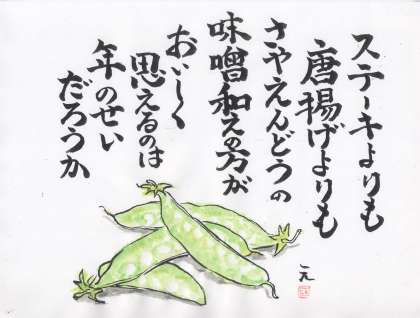 ステーキよりも
唐揚げよりも
さやえんどうの
味噌和えの方が
おいしく
思えるのは
年のせい
だろうか
一九